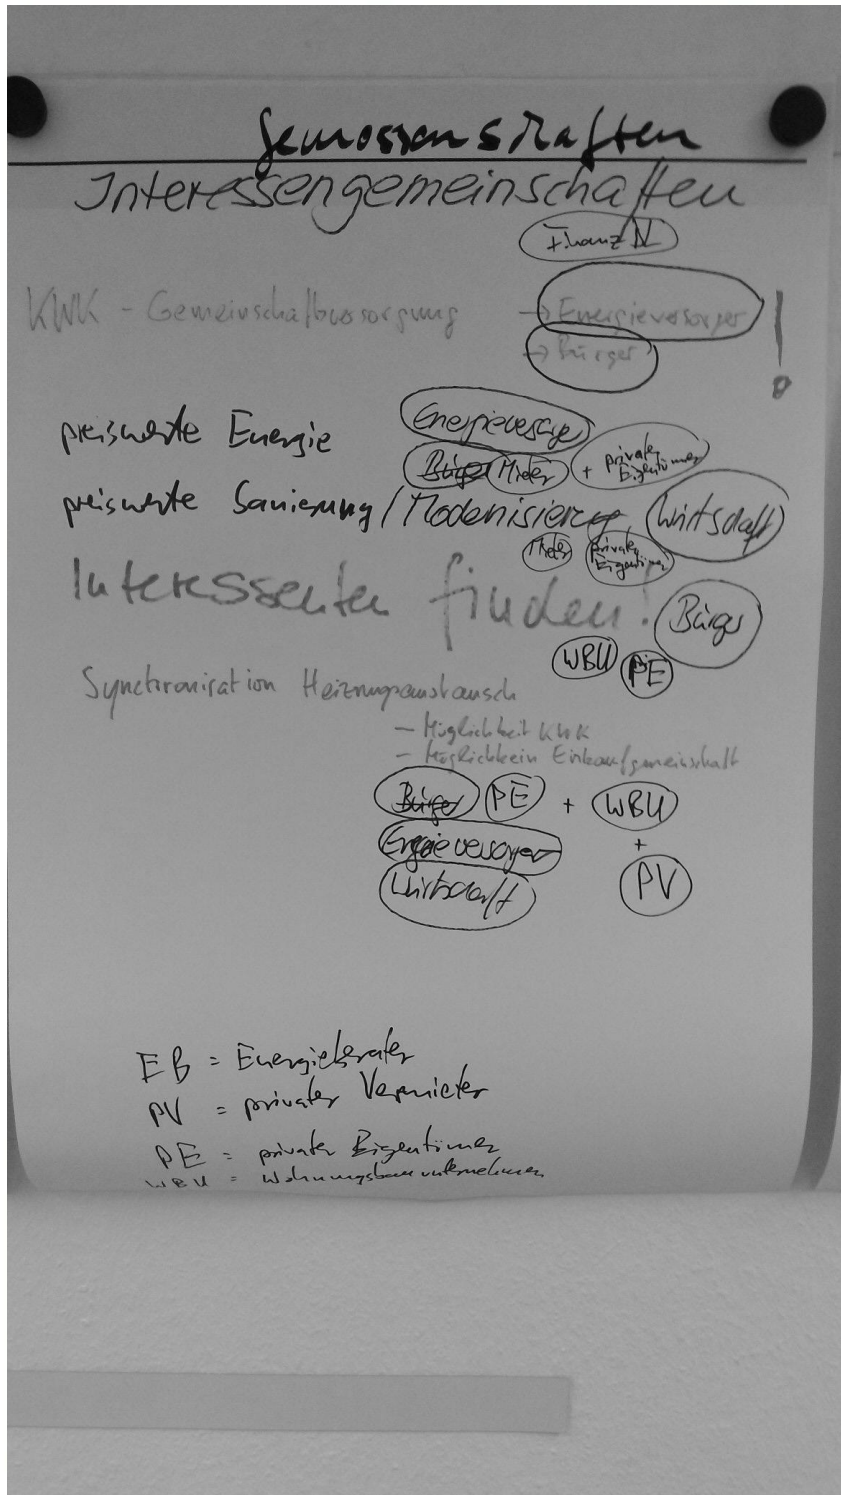 Genossenschaften
Interessengemeinschaften
Finanz N
KWK - Gemeinschaftsversorgung → Energieversorger !
→ Bürger
preiswerte Energie Energieversorger
Bürger Mieter + privater Eigentümer
preiswerte Sanierung / Modernisierung Wirtschaft
Mieter privater Eigentümer
Interessenten finden! Bürger
WBU PE
Synchronisation Heizungsaustausch
- Möglichkeit KWK
- Möglichkein Einkaufgemeinschaft
Bürger PE + WBU
Energieversorger +
Wirtschaft PV
EB = Energieberater
PV = privater Vermieter
PE = privater Eigentümer
WBU = Wohnungsbauunternehmen